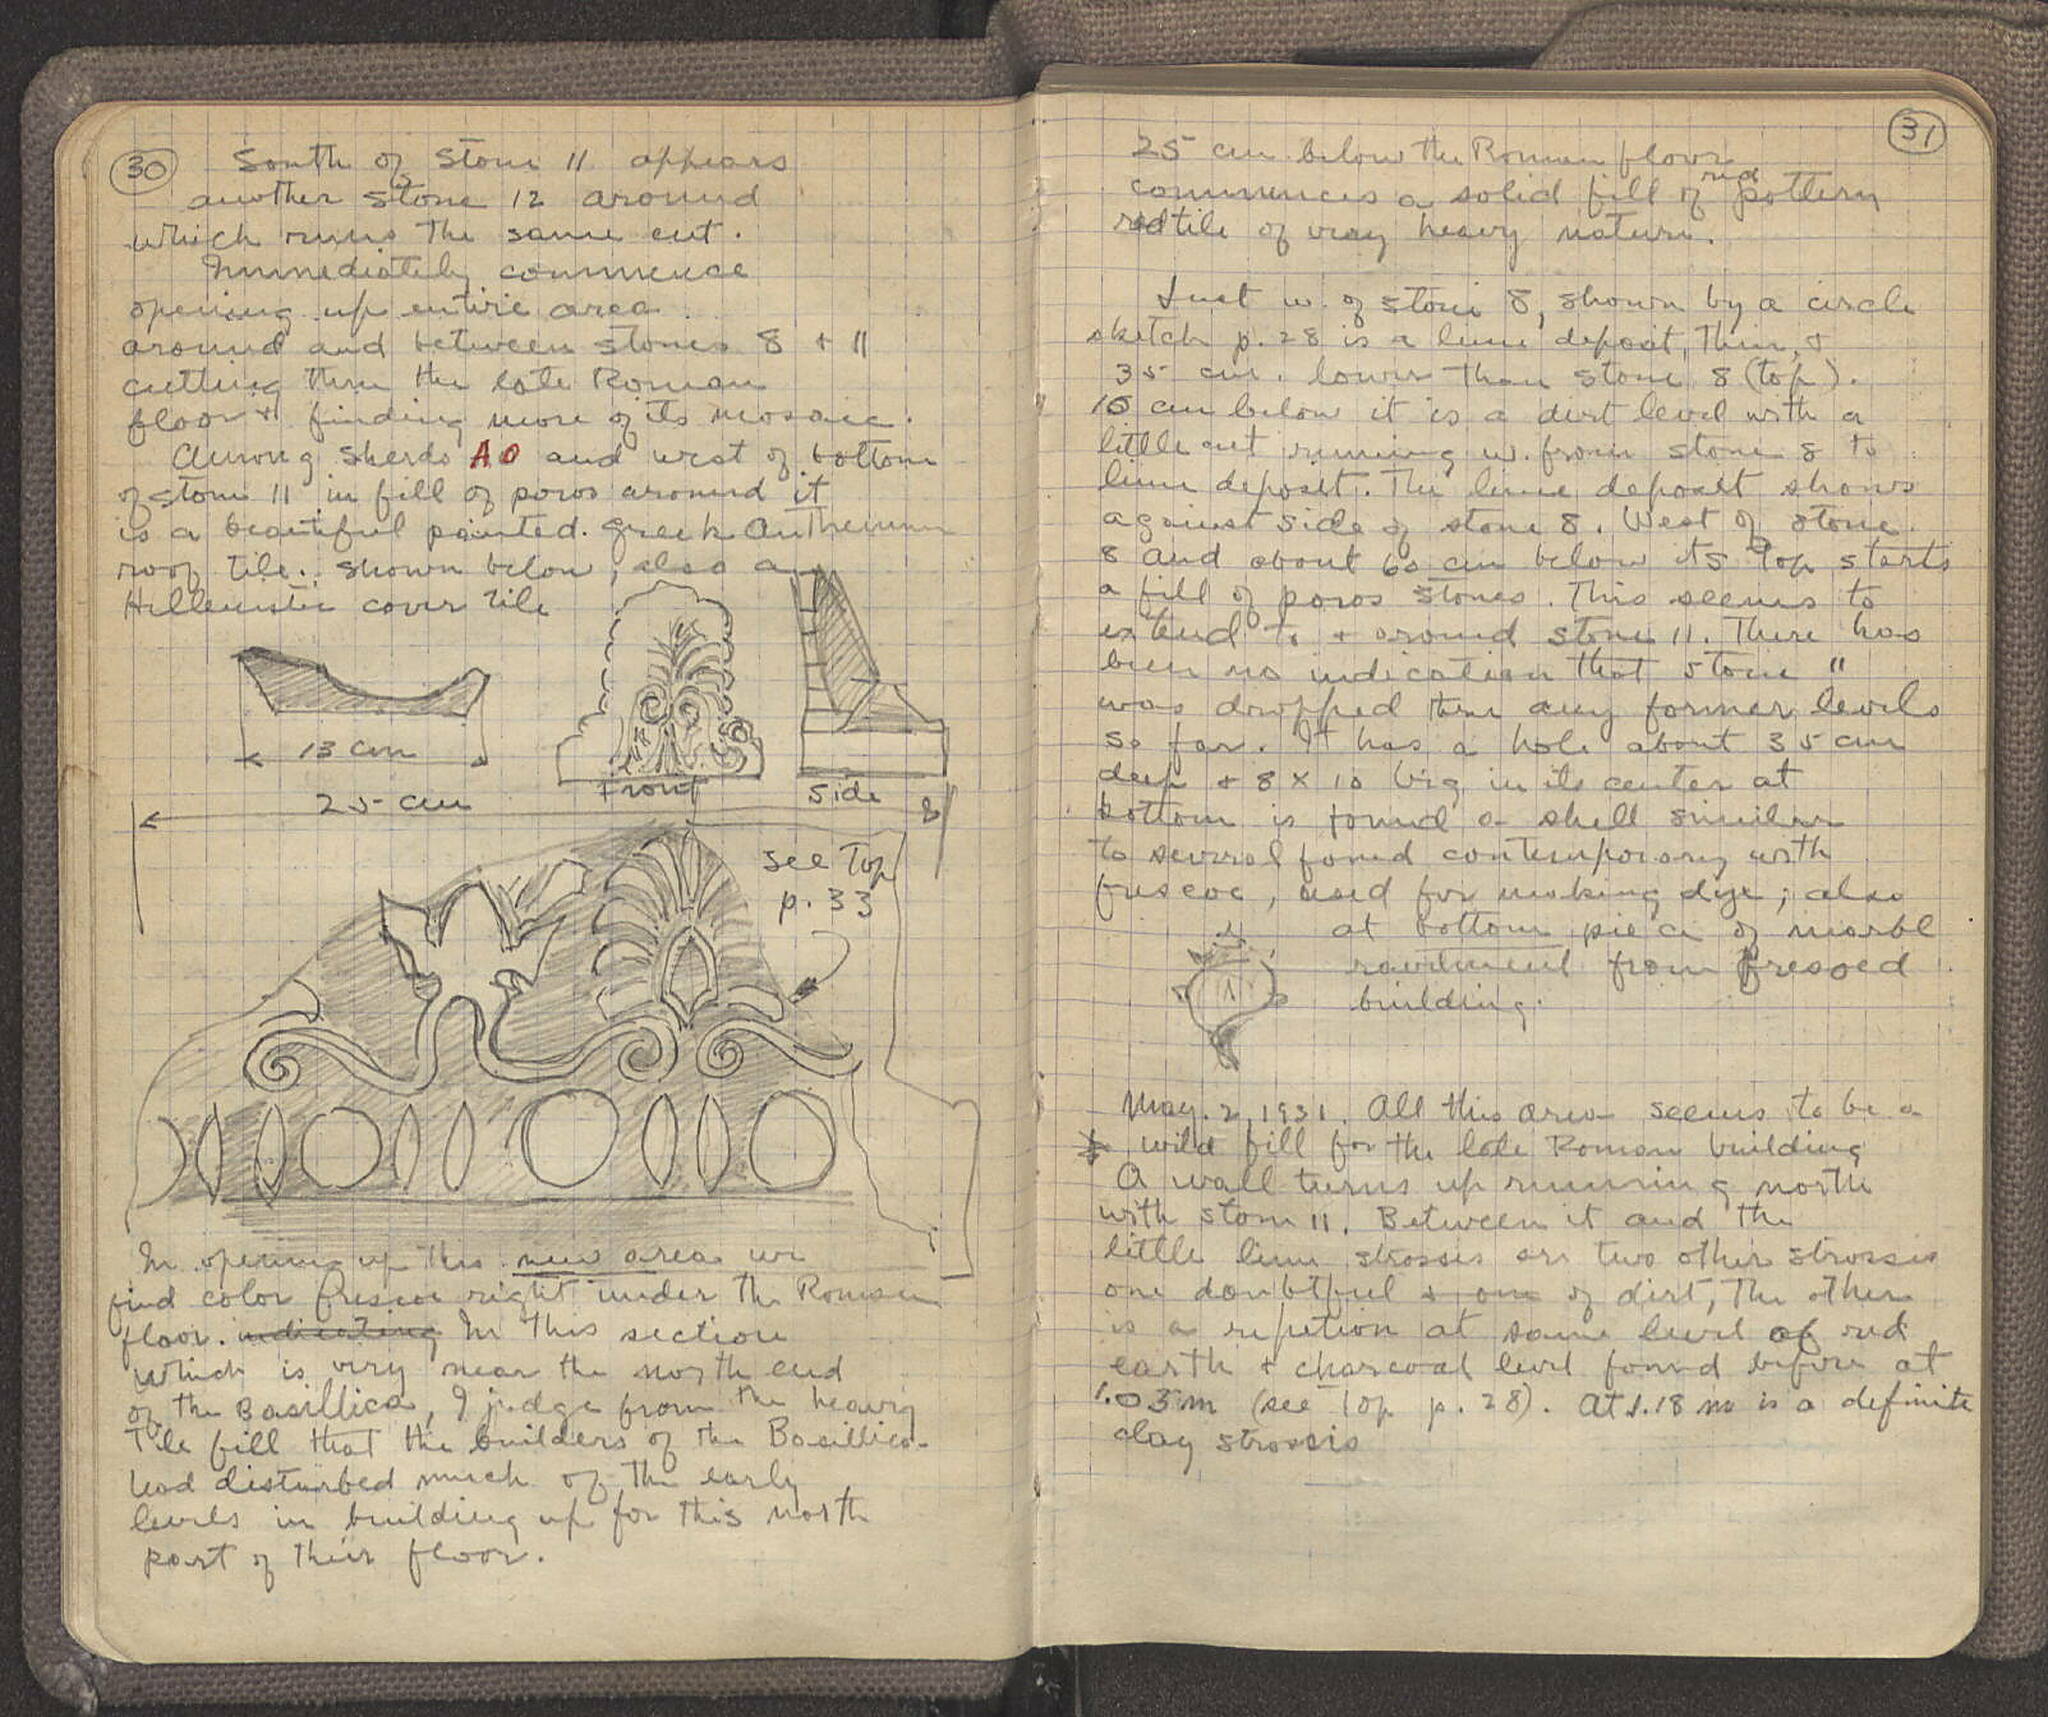 30
South of Stone 11 appears
another stone 12 around
which runs the same cut.
Immediately commence
opening up entire area
around and between stones 8 + 11
cutting thru the late Roman
floor + finding more of its mosaic.
Among sherds AO and west of bottom
of stone 11 in fill of poros around it
is a beautiful painted Greek Anthemion
roof tile. shown below, also a
Hellenistic cover tile
13 cm
Front
Side
25 cm
8
see Top
p. 33
In opening up this new area we
find color fresco right under the Roman
floor. indicating In this section
which is very near the north end
of the Basillica, I judge from the heavy
tile fill that the builders of the Basillica
had disturbed much of the early
levels in building up for this north
part of their floor.
31
25 cm below the Roman floor
commences a solid fill of red pottery
red tile of very heavy nature.
Just w. of stone 8, shown by a circle
sketch p. 28 is a lime deposit, thin, +
35 cm. lower than stone 8 (top).
10 cm below it is a dirt level with a
little cut running w. from stone 8 to
lime deposit. The lime deposit shows
against side of stone 8. West of stone
8 and about 60 cm below its top starts
a fill of poros stones. This seems to
extend to + around stone 11. There has
been no indication that stone 11
was dropped thru any former levels
so far. It has a hole about 35 cm
deep + 8 x 10 big in its center at
bottom is found a shell similar
to several found contemporary with
frescoe, used for making dye; also
at bottom piece of marbl
revetment from frescoed
building.
May. 2, 1931. All this area seems to be a
wild fill for the late Roman building
A wall turns up running north
with stone 11. Between it and the
little lime strosses are two other strosses
one doubtful + one of dirt, The other
is a repetion at same level of red
earth + charcoal level found before at
1.03 m (see Top p. 28). At 1.18 m is a definite
clay strosis